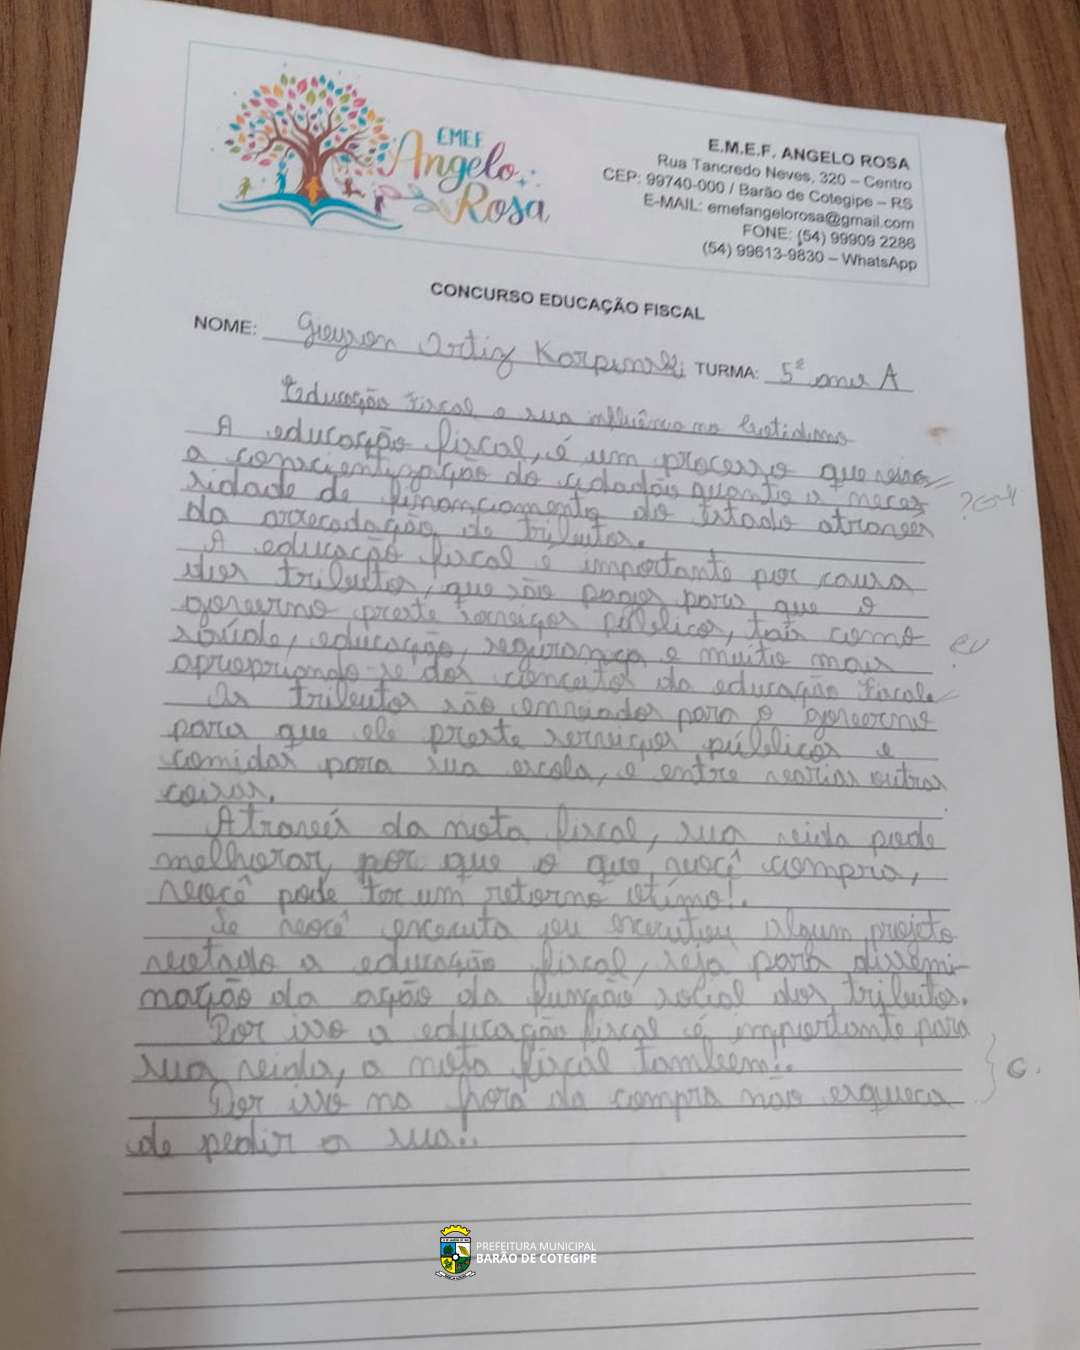 EMEF
Angelo
Rosa
E.M.E.F. ANGELO ROSA
Rua Tancredo Neves, 320 – Centro
CEP: 99740-000 / Barão de Cotegipe – RS
E-MAIL: emefangelorosa@gmail.com
FONE: (54) 99909 2286
(54) 99613-9830 – WhatsApp
CONCURSO EDUCAÇÃO FISCAL
NOME: Ortiz TURMA: 5º ano A
Educação Fiscal e sua influência no Cotidiano
A educação fiscal, é um processo que visa
a conscientização do cidadão quanto a neces
sidade de financiamento do Estado atravéz
da arrecadação de tributos.
A educação fiscal é importante por causa
dos tributos, que são pagos para que o
governo preste serviços públicos, tais como
saúde, educação, segurança e muito mais
apropriando-se dos conceitos da educação fiscal.
Os tributos são enviados para o governo
para que ele preste serviços públicos e
comidas para sua escola, e entre várias outras
coisas.
Através da nota fiscal, sua vida pode
melhorar, por que o que você compra,
você pode ter um retorno ótimo!.
Se você executa ou executou algum projeto
voltado a educação fiscal, seja para dissemi-
nação da ação da função social dos tributos.
Por isso a educação fiscal é importante para
sua vida, a nota fiscal também!.
Por isso na hora da compra não esqueça
de pedir a sua!.
PREFEITURA MUNICIPAL
BARÃO DE COTEGIPE